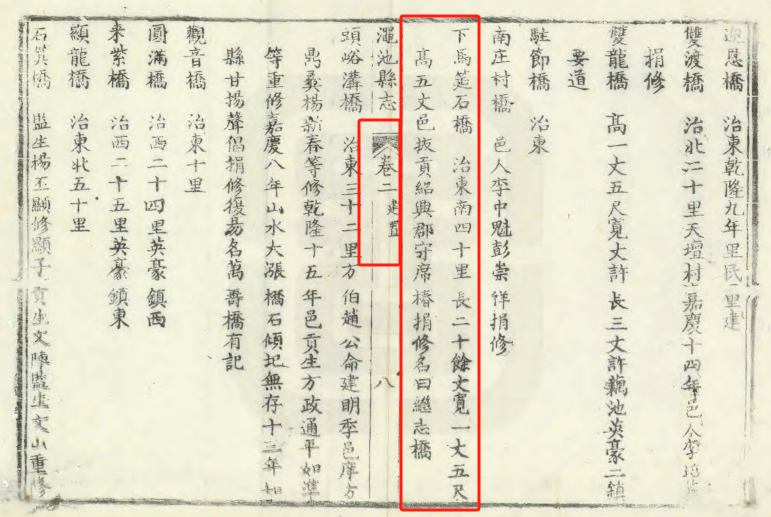 迎恩橋 治東乾隆九年里民 里建
雙渡橋 治北二十里天壇村嘉慶十四年邑人李
捐修
雙龍橋 高一丈五尺寬丈許長三丈許藕池英豪二鎮
要道
駐節橋 治東
南庄村橋 邑人李中魁彭崇徉捐修
下馬莚石橋 治東南四十里長二十餘丈寬一丈五尺
高五丈邑拔貢紹興郡守席椿捐修名曰繼志橋
澠池縣志 卷二 建置 八
頭峪溝橋 治東三十二里方伯趙公命建明季邑庠方
鳧彞楊新春等修乾隆十五年邑貢生方政通平如準
等重修嘉慶八年山水大漲橋石傾圮無存十三年知
縣甘揚聲倡捐修復易名萬壽橋有記
觀音橋 治東十里
圓滿橋 治西二十四里英豪鎮西
來紫橋 治西二十五里英豪鎮東
顯龍橋 治東北五十里
石箕橋 監生楊丕顯修顯子貢生文陣監生文山重修